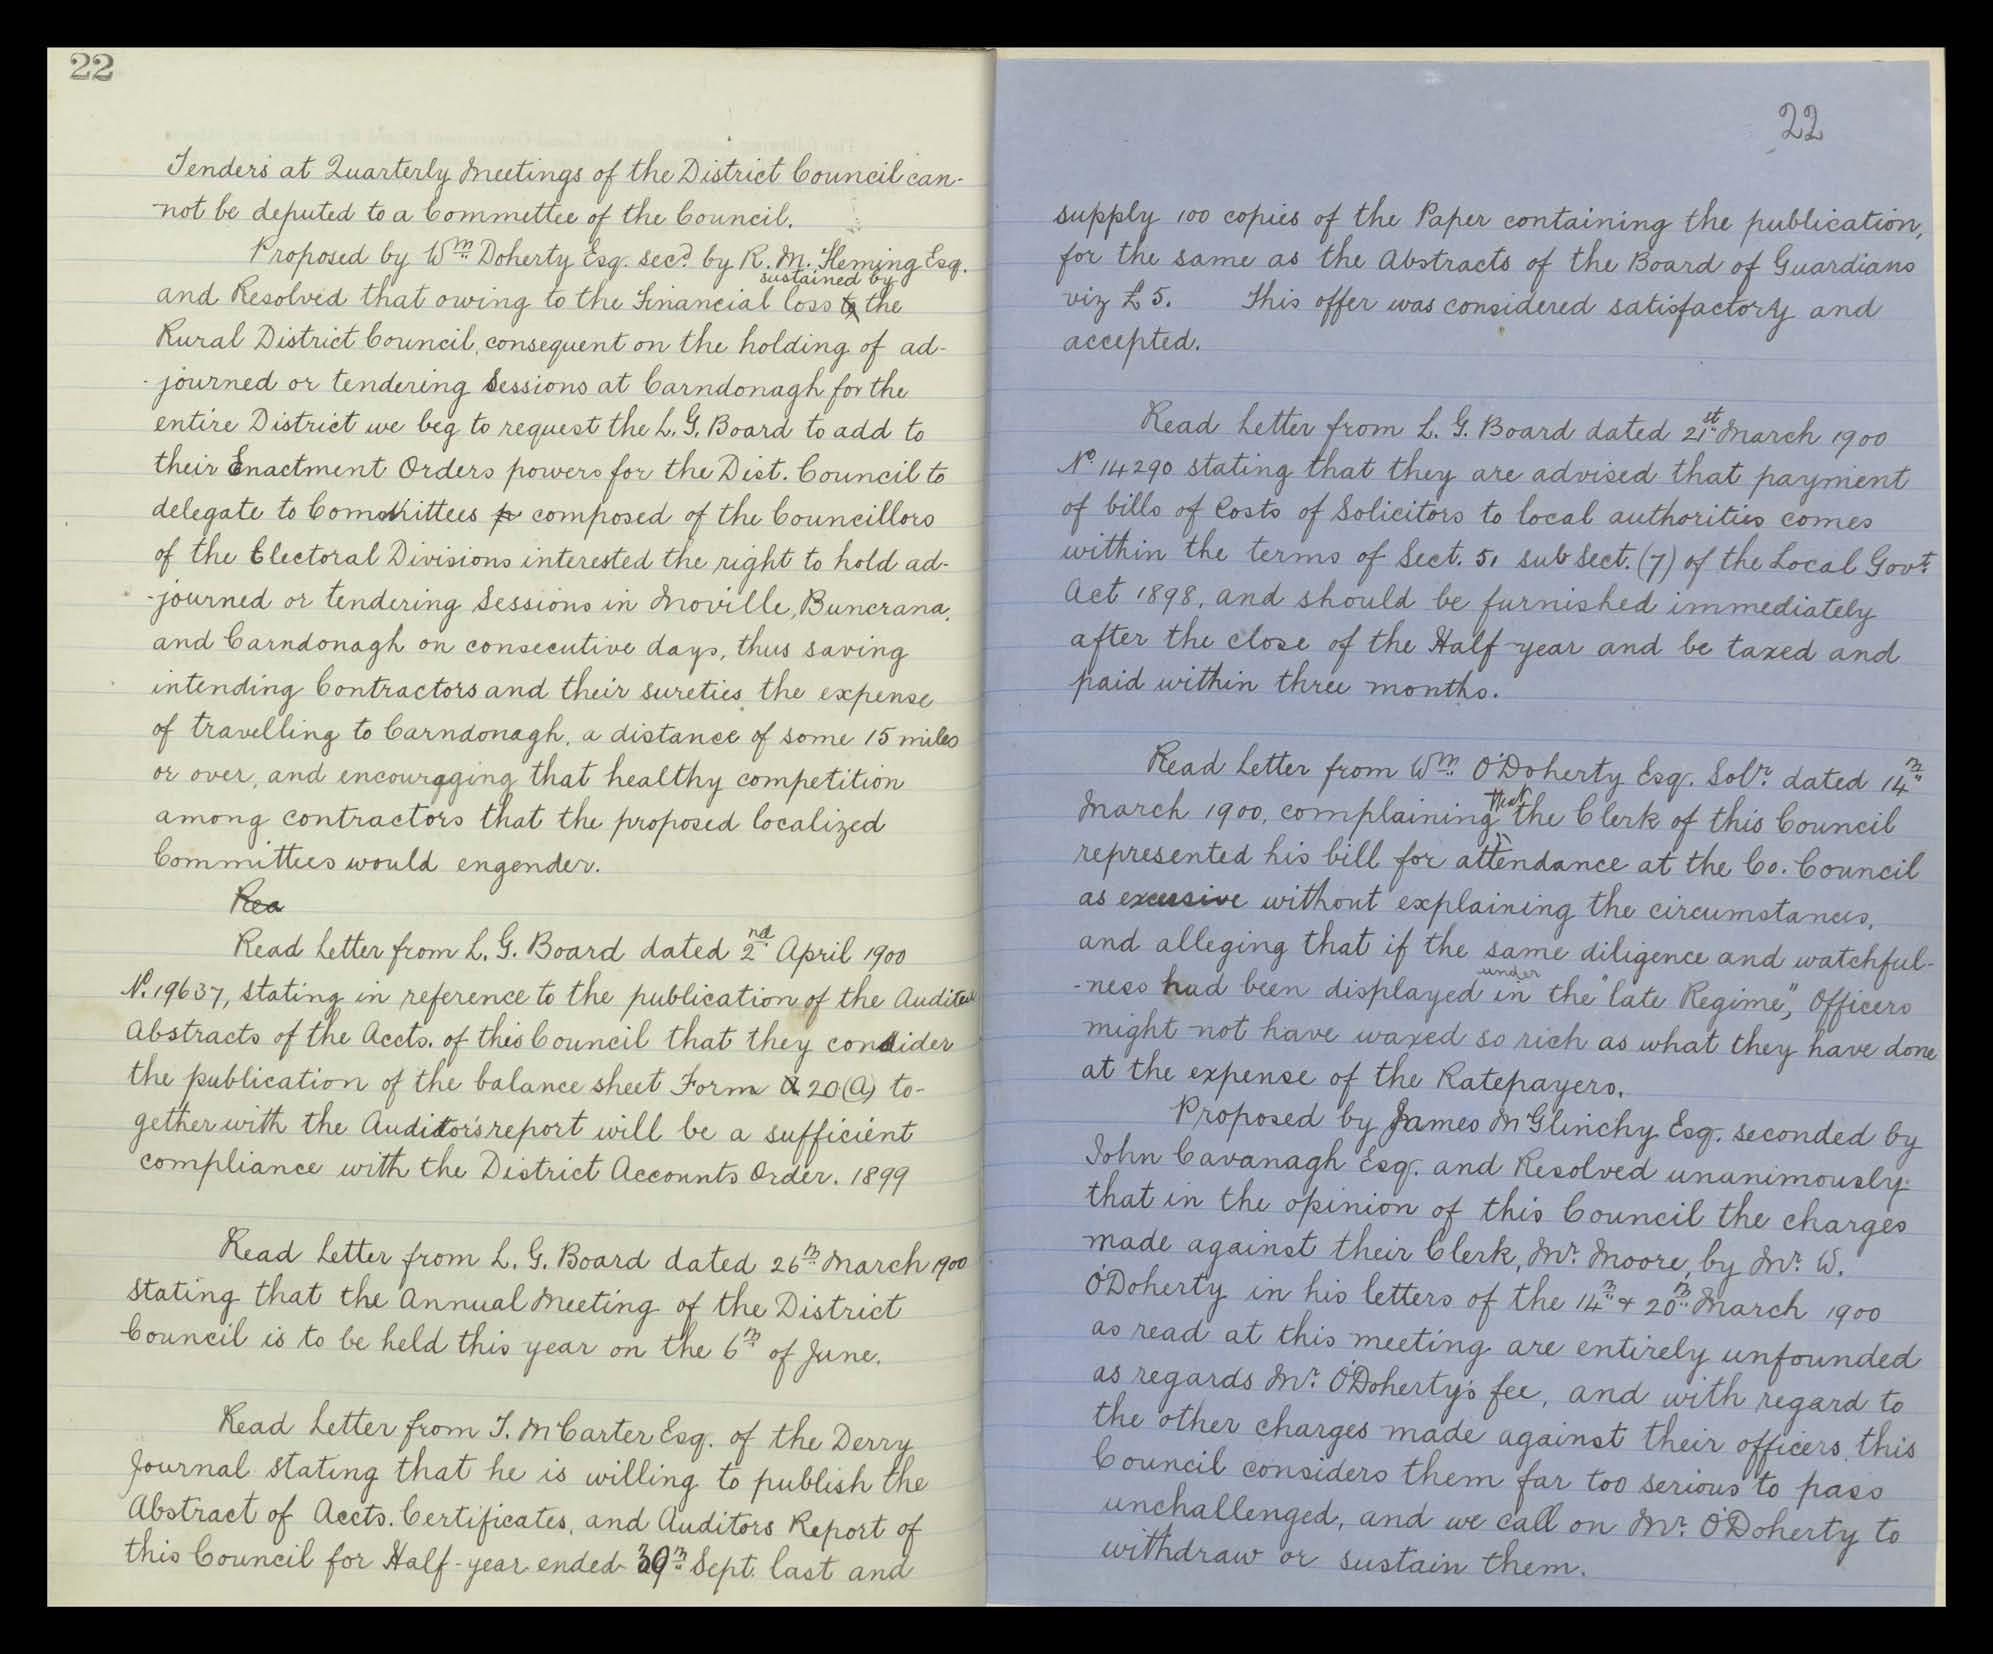 22
Tenders at Quarterly Meetings of the District Council can-
-not be deputed to a Committee of the Council.
Proposed by Wm Doherty Esq. secd. by R. M. Fleming Esq.
sustained by
and Resolved that owing to the Financial loss to the
Rural District Council, consequent on the holding of ad-
-journed or tendering Sessions at Carndonagh for the
entire District we beg to request the L. G. Board to add to
their Enactment Orders powers for the Dist. Council to
delegate to Committees composed of the Councillors
of the Electoral Divisions interested the right to hold ad-
-journed or tendering Sessions in Moville, Buncrana,
and Carndonagh on consecutive days, thus saving
intending Contractors and their sureties the expense
of travelling to Carndonagh, a distance of some 15 miles
or over, and encouraging that healthy competition
among contractors that the proposed localized
Committees would engender.
Rea
Read Letter from L. G. Board dated 2nd April 1900
No. 19637, stating in reference to the publication of the Audited
Abstracts of the Accts. of this Council that they consider
the publication of the balance sheet Form 20(A) to-
gether with the Auditor's report will be a sufficient
compliance with the District Accounts Order. 1899
Read Letter from L. G. Board dated 26th March 1900
stating that the Annual Meeting of the District
Council is to be held this year on the 6th of June.
Read Letter from J. McCarter Esq. of the Derry
Journal stating that he is willing to publish the
Abstract of Accts. Certificates, and Auditors Report of
this Council for Half-year ended 30th Sept. last and
22
supply 100 copies of the Paper containing the publication,
for the same as the Abstracts of the Board of Guardians
viz £5. This offer was considered satisfactory and
accepted.
Read Letter from L. G. Board dated 21st March 1900
No. 14290 stating that they are advised that payment
of bills of Costs of Solicitors to local authorities comes
within the terms of Sect. 51 sub Sect. (7) of the Local Govt.
Act 1898, and should be furnished immediately
after the close of the Half-year and be taxed and
paid within three months.
Read Letter from Wm O'Doherty Esq. Solr. dated 14th
March 1900, complaining that the Clerk of this Council
represented his bill for attendance at the Co. Council
as excessive without explaining the circumstances,
and alleging that if the same diligence and watchful-
under
-ness had been displayed in the "late Regime", Officers
might not have waxed so rich as what they have done
at the expense of the Ratepayers.
Proposed by James McGlinchy Esq. seconded by
John Cavanagh Esq. and Resolved unanimously
that in the opinion of this Council the charges
made against their Clerk, Mr. Moore, by Mr. W.
O'Doherty in his letters of the 14th & 20th March 1900
as read at this meeting are entirely unfounded
as regards Mr. O'Doherty's fee, and with regard to
the other charges made against their officers this
Council considers them far too serious to pass
unchallenged, and we call on Mr. O'Doherty to
withdraw or sustain them.